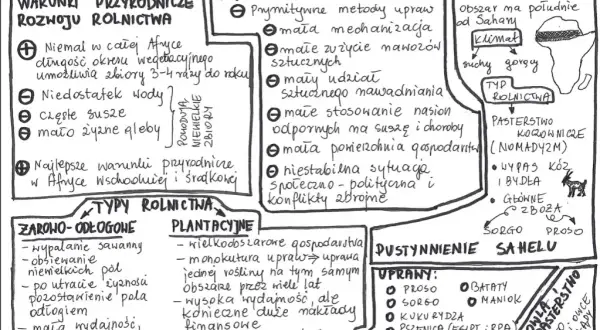 WARUNKI PRZYRODNICZE
ROZWOJU ROLNICTWA
Niemal w całej Afryce
długość okresu wegetacyjnego
umożliwia zbiory 3-4 razy do roku
Niedostatek wody
częste susze
mało żyzne gleby
POWODUJĄ
NIEWIELKIE
ZBIORY
Najlepsze warunki przyrodnicze
w Afryce Wschodniej i Środkowej
Prymitywne metody upraw
mała mechanizacja
małe zużycie nawozów
sztucznych
mały udział
sztucznego nawadniania
małe stosowanie nasion
odpornych na suszę i choroby
mała powierzchnia gospodarstw
niestabilna sytuacja
społeczno-polityczna i
konflikty zbrojne
obszar na południe
od Sahary
klimat
suchy gorący
TYP
ROLNICTWA
PASTERSTWO
KOCZOWNICZE
(NOMADYZM)
• WYPAS KÓZ
I BYDŁA
• GŁÓWNE
ZBOŻA
SORGO PROSO
PUSTYNNIENIE SAHELU
TYPY ROLNICTWA
ŻAROWO-ODŁOGOWE
- wypalanie sawanny
- obsiewanie
niewielkich pól
- po utracie żyzności
pozostawienie pola
odłogiem
- mała wydajność,
PLANTACYJNE
- wielkoobszarowe gospodarstwa
- monokultura upraw → uprawa
jednej rośliny na tym samym
obszarze przez wiele lat
- wysoka wydajność, ale
konieczne duże nakłady
finansowe
UPRAWY:
PROSO
SORGO
KUKURYDZA
PSZENICA (EGIPT, RPA)
BATATY
MANIOK
PASTERSTWO
OWCE